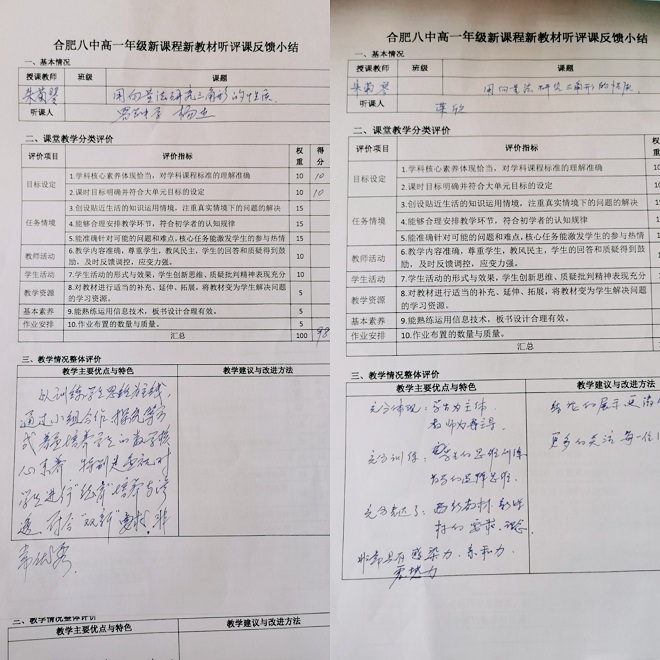 合肥八中高一年级新课程新教材听评课反馈小结
一、基本情况
授课教师 班级 课题
朱菊琴 用向量法研究三角形的性质
听课人
二、课堂教学分类评价
评价项目 评价指标 权重 得分
目标设定 1.学科核心素养体现恰当，对学科课程标准的理解准确 10 10
2.课时目标明确并符合大单元目标的设定 10 10
任务情境 3.创设贴近生活的知识运用情境，注重真实情境下的问题的解决 15
4.能够合理安排教学环节，符合初学者的认知规律 15
5.能准确针对可能的问题和难点,核心任务能激发学生的参与热情 15
教师活动 6.教学内容准确，尊重学生，教风民主，学生的回答和质疑得到鼓
励，及时反馈调控，应变力强。 10
学生活动 7.学生活动的形式与效果，学生创新思维、质疑批判精神表现充分 10
教学资源 8.对教材进行适当的补充、延伸、拓展，将教材变为学生解决问题
的学习资源。 5
基本素养 9.能熟练运用信息技术，板书设计合理有效。 5
作业安排 10.作业布置的数量与质量。 5
汇总 100 98
三、教学情况整体评价
教学主要优点与特色 教学建议与改进方法
以训练学生思维为主线，
通过小组合作、探究等方
式着重培养学生的数学核
心素养
学生进行
透，符合“双新”要求，非
常优秀。
二、教学情况整体评价
教学主要优点与特色 教学建议与改进方法
合肥八中高一年级新课程新教材听评课反馈小结
一、基本情况
授课教师 班级 课题
朱菊琴 用向量法研究三角形的性质
听课人
二、课堂教学分类评价
评价项目 评价指标 权重
目标设定 1.学科核心素养体现恰当，对学科课程标准的理解准确 10
2.课时目标明确并符合大单元目标的设定 10
任务情境 3.创设贴近生活的知识运用情境，注重真实情境下的问题的解决 15
4.能够合理安排教学环节，符合初学者的认知规律 15
5.能准确针对可能的问题和难点,核心任务能激发学生的参与热情 15
教师活动 6.教学内容准确，尊重学生，教风民主，学生的回答和质疑得到鼓
励，及时反馈调控，应变力强。 10
学生活动 7.学生活动的形式与效果，学生创新思维、质疑批判精神表现充分 10
教学资源 8.对教材进行适当的补充、延伸、拓展，将教材变为学生解决问题
的学习资源。 5
基本素养 9.能熟练运用信息技术，板书设计合理有效。 5
作业安排 10.作业布置的数量与质量。 5
汇总 100
三、教学情况整体评价
教学主要优点与特色 教学建议与改进方法
充分体现：学生为主体
老师为主导。
充分训练：学生的思维训练
充分表达了：
材的要求、理念。
非常具有感染力、亲和力
更多的关注每一位